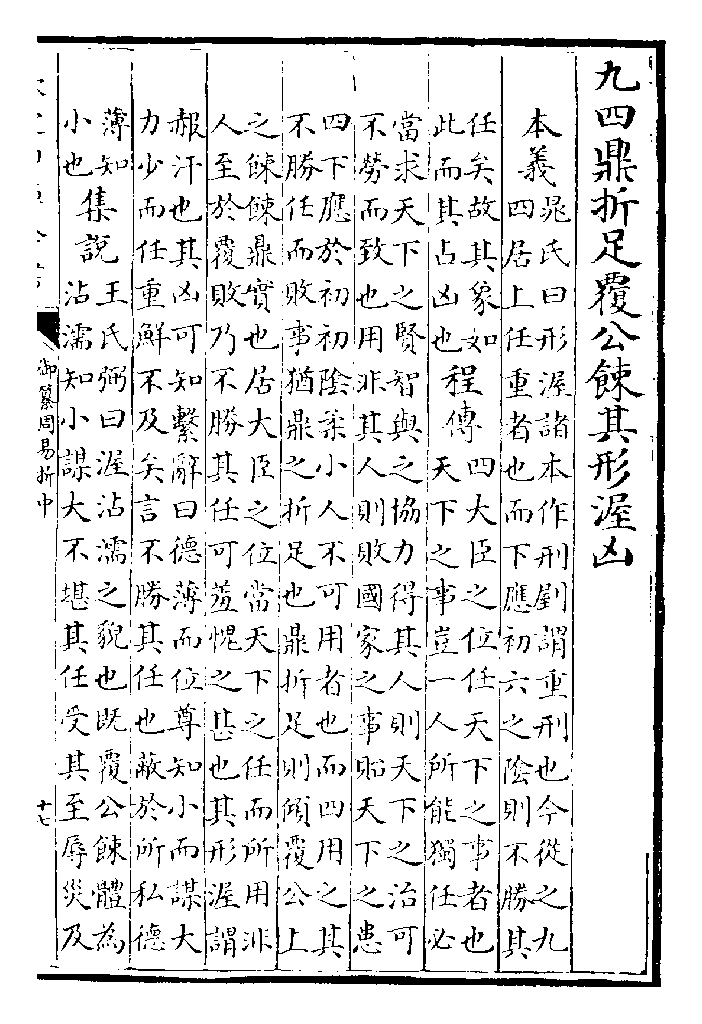 九四鼎折足覆公餗其形渥凶
本義
晁氏曰形渥諸本作刑剭謂重刑也今從之九
四居上任重者也而下應初六之陰則不勝其
任矣故其象如
此而其占凶也
程傳
四大臣之位任天下之事者也
天下之事豈一人所能獨任必
當求天下之賢智與之協力得其人則天下之治可
不勞而致也用非其人則敗國家之事貽天下之患
四下應於初初陰柔小人不可用者也而四用之其
不勝任而敗事猶鼎之折足也鼎折足則傾覆公上
之餗餗鼎實也居大臣之位當天下之任而所用非
人至於覆敗乃不勝其任可羞愧之甚也其形渥謂
赧汗也其凶可知繫辭曰德薄而位尊知小而謀大
力少而任重鮮不及矣言不勝其任也蔽於所私德
薄知
小也
集說
王氏弼曰渥沾濡之貌也既覆公餗體為
沾濡知小謀大不堪其任受其至辱災及
御纂周易折中
十七